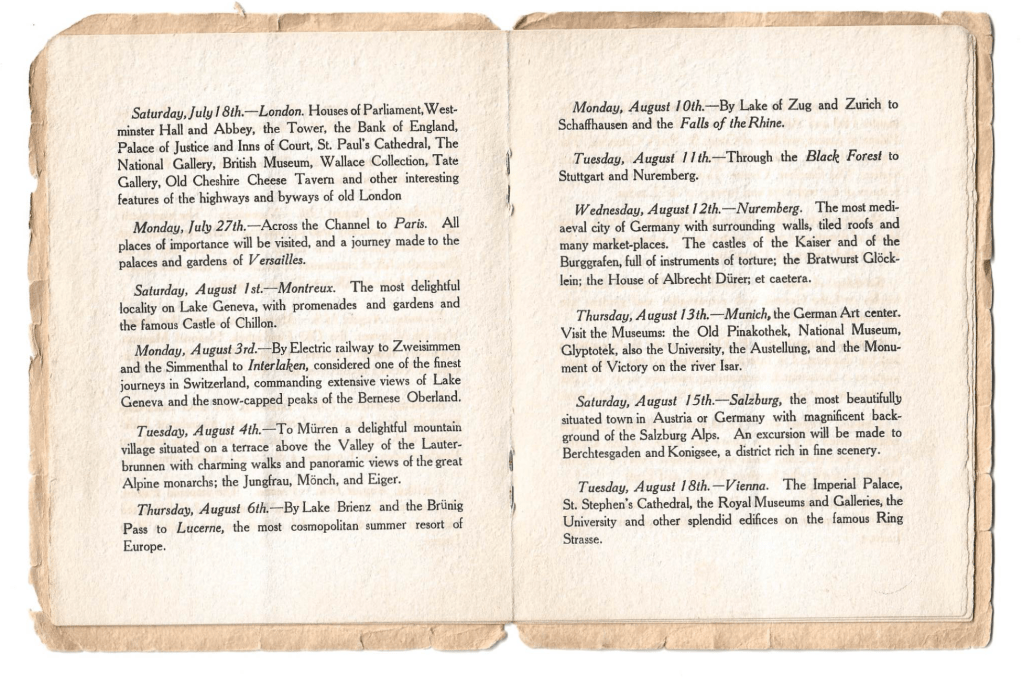 Saturday, July 18th.—London. Houses of Parliament, West-
minster Hall and Abbey, the Tower, the Bank of England,
Palace of Justice and Inns of Court, St. Paul's Cathedral, The
National Gallery, British Museum, Wallace Collection, Tate
Gallery, Old Cheshire Cheese Tavern and other interesting
features of the highways and byways of old London
Monday, July 27th.—Across the Channel to Paris. All
places of importance will be visited, and a journey made to the
palaces and gardens of Versailles.
Saturday, August 1st.—Montreux. The most delightful
locality on Lake Geneva, with promenades and gardens and
the famous Castle of Chillon.
Monday, August 3rd.—By Electric railway to Zweisimmen
and the Simmenthal to Interlaken, considered one of the finest
journeys in Switzerland, commanding extensive views of Lake
Geneva and the snow-capped peaks of the Bernese Oberland.
Tuesday, August 4th.—To Mürren a delightful mountain
village situated on a terrace above the Valley of the Lauter-
brunnen with charming walks and panoramic views of the great
Alpine monarchs; the Jungfrau, Mönch, and Eiger.
Thursday, August 6th.—By Lake Brienz and the Brünig
Pass to Lucerne, the most cosmopolitan summer resort of
Europe.
Monday, August 10th.—By Lake of Zug and Zurich to
Schaffhausen and the Falls of the Rhine.
Tuesday, August 11th.—Through the Black Forest to
Stuttgart and Nuremberg.
Wednesday, August 12th.—Nuremberg. The most medi-
aeval city of Germany with surrounding walls, tiled roofs and
many market-places. The castles of the Kaiser and of the
Burggrafen, full of instruments of torture; the Bratwurst Glöck-
lein; the House of Albrecht Dürer; et caetera.
Thursday, August 13th.—Munich, the German Art center.
Visit the Museums: the Old Pinakothek, National Museum,
Glyptotek, also the University, the Austellung, and the Monu-
ment of Victory on the river Isar.
Saturday, August 15th.—Salzburg, the most beautifully
situated town in Austria or Germany with magnificent back-
ground of the Salzburg Alps. An excursion will be made to
Berchtesgaden and Konigsee, a district rich in fine scenery.
Tuesday, August 18th.—Vienna. The Imperial Palace,
St. Stephen's Cathedral, the Royal Museums and Galleries, the
University and other splendid edifices on the famous Ring
Strasse.